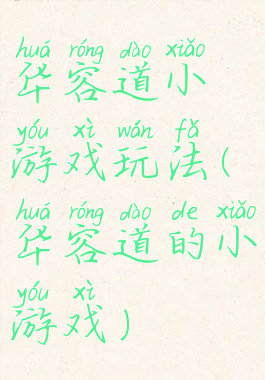 huá róng dào xiǎo
华容道小
yóu xì wán fǎ
游戏玩法(
huá róng dào de xiǎo
华容道的小
yóu xì
游戏)